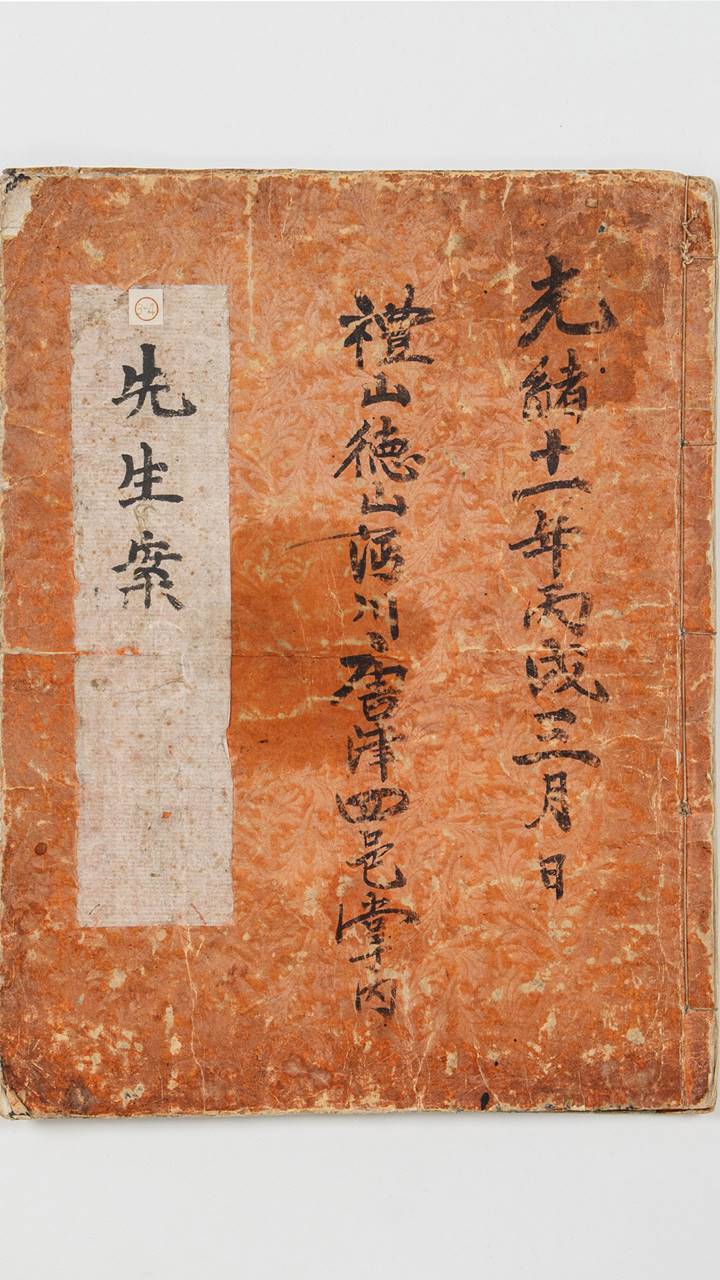 光緒十一年丙戌三月 日
禮山徳山沔川唐津四邑掌內
先生案